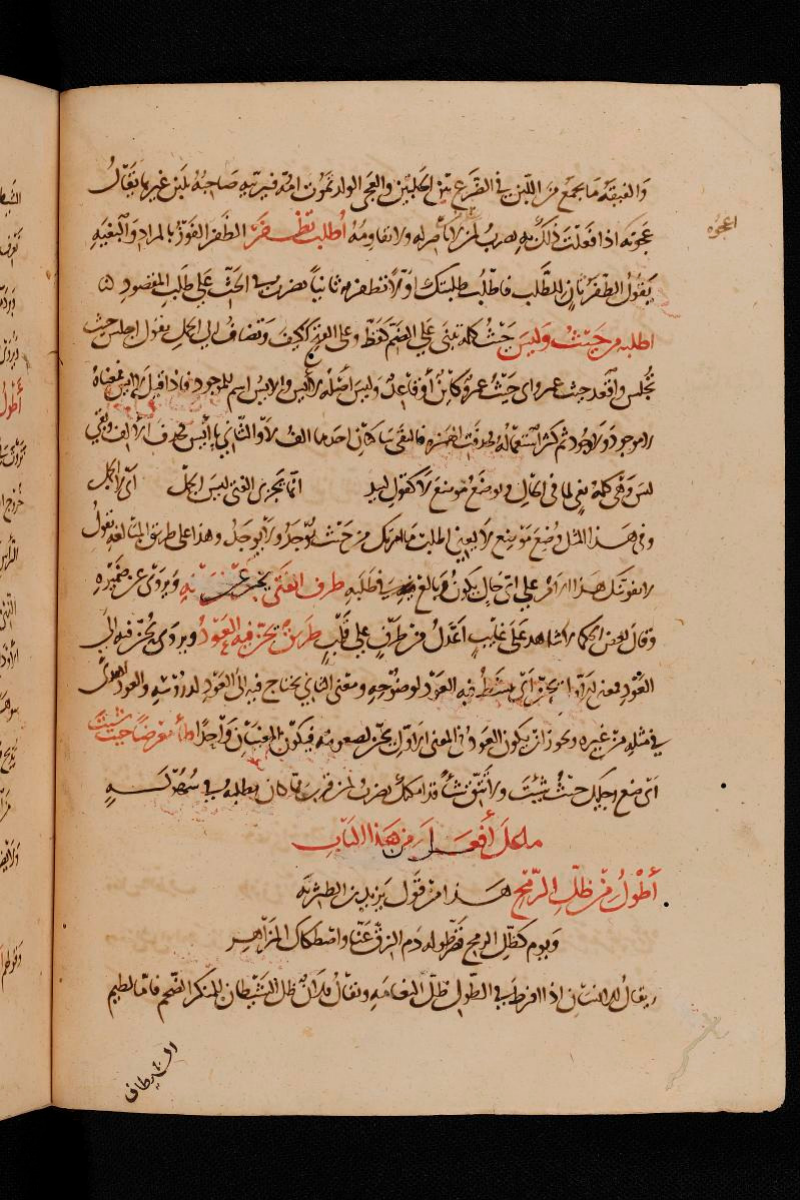 والغيقة ما يجمع من اللبن في الضرع بين الحلبتين والعجى الولد تموت امه فيربيه صاحبه بلبن غيرها يقال
عجوته اذا فعلت ذلك به يضرب لمن لا ناصر له ولا يقاومه أطلب تظفر الظفر الفوز بالمراد والبغيه
يقول الظفر ثان للطلب فاطلب طلبتك اولا تظفر به ثانيا يضرب في الحث على طلب المقصود
اطلبه من حيث وليس حيث كلمة تبنى على الضم كقط وعلى الفتح ككيف وتضاف الى الجمل يقول اجلس حيث
تجلس واقعد حيث عمرو اى حيث عمرو كائن أو قاعد وليس اصله لا أيس والايس اسم للموجود فاذا قيل لا ايس فمعناه
لا موجود ولا وجود ثم كثر استعماله فحذفت الهمزة فالتقى ساكنان احدهما الف لا والثاني ياء ايس فحذفت الالف وبقي
ليس وهى كلمة نفي لما في الحال وتوضع موضع لا كقول لبيد انما يجزى الفتى ليس الجمل أى لا الجمل
وفي هذا المثل وضع موضع لا يعنى اطلب ما امرتك من حيث يوجد ولا يوجد وهذا على طريق المبالغة يقول
لا يفوتنك هذا الامر على اى حال يكون وبالغ في طلبه طرف الفتى يخبر عن جنانه ويروى عن ضميره
وقال بعض الحكماء لا شاهد على غايب اعدل من طرف على قلب طريق يحن فيه العود ويروى يحن فيه الى
العود فمعنى الاول يحن أى ينشط فيه العود لوضوحه ومعنى الثاني يحتاج فيه الى العود لدروسه والعود اهدى
في مثله من غيره ويجوز ان يكون العود في المعنى الاول يحن لصعوبته فيكون المعنيان واحدا طأ معرضا حيث شئت
أى ضع رجليك حيث شئت ولا تتق شيئا قد امكنك يضرب لمن قرب مما كان يطلبه في سهولة
ما على أفعل من هذا الباب
أطول من ظل الرمح هذا من قول يزيد بن الطثرية
ويوم كظل الرمح قصر طوله دم الزق عنا واصطكاك المزاهر
ويقال للانسان اذا افرط في الطول ظل النعامه ويقال فلان ظل الشيطان للمنكر الضخم فاما لطيم
الشيطان